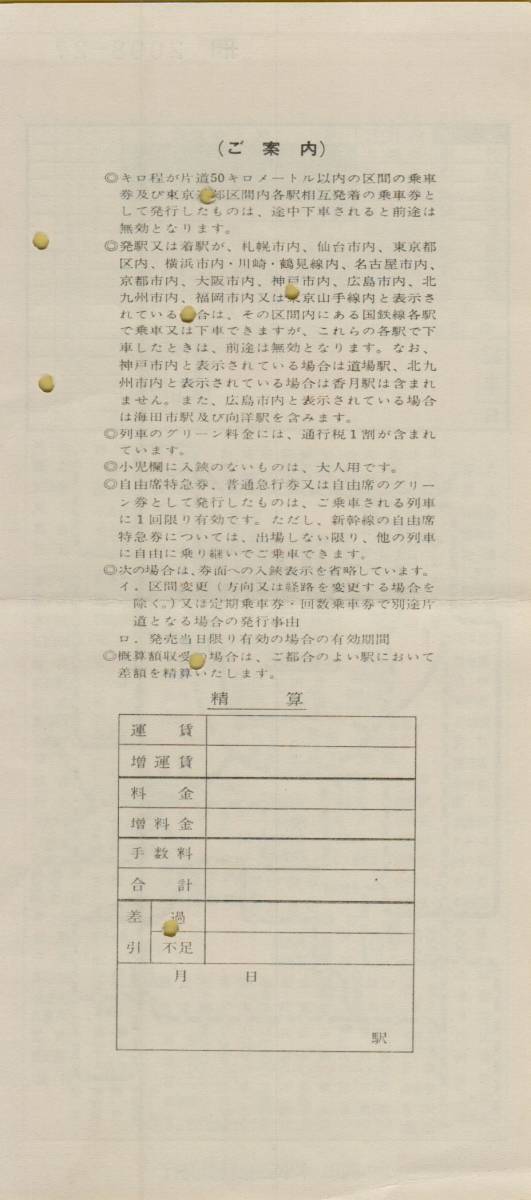 （ご案内）
◎キロ程が片道50キロメートル以内の区間の乗車
券及び東京 区間内各駅相互発着の乗車券と
して発行したものは、途中下車されると前途は
無効となります。
◎発駅又は着駅が、札幌市内、仙台市内、東京都
区内、横浜市内・川崎・鶴見線内、名古屋市内、
京都市内、大阪市内、神戸市内、広島市内、北
九州市内、福岡市内又は東京山手線内と表示さ
れている場合は、その区間内にある国鉄線各駅
で乗車又は下車できますが、これらの各駅で下
車したときは、前途は無効となります。なお、
神戸市内と表示されている場合は道場駅、北九
州市内と表示されている場合は香月駅は含まれ
ません。また、広島市内と表示されている場合
は海田市駅及び向洋駅を含みます。
◎列車のグリーン料金には、通行税1割が含まれ
ています。
◎小児欄に入鋏のないものは、大人用です。
◎自由席特急券、普通急行券又は自由席のグリー
ン券として発行したものは、ご乗車される列車
に1回限り有効です。ただし、新幹線の自由席
特急券については、出場しない限り、他の列車
に自由に乗り継いでご乗車できます。
◎次の場合は、券面への入鋏表示を省略しています。
イ．区間変更（方向又は経路を変更する場合を
除く。）又は定期乗車券・回数乗車券で別途片
道となる場合の発行事由
ロ．発売当日限り有効の場合の有効期間
◎概算額収受の場合は、ご都合のよい駅において
差額を精算いたします。
精算
運賃
増運賃
料金
増料金
手数料
合計
差引 過
不足
月 日
駅